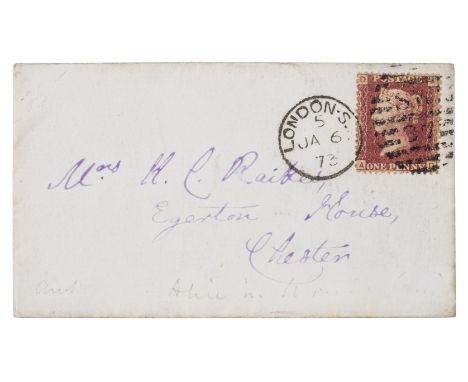 LONDON-S.
5
JA 6
73
POSTAGE
ONE PENNY
Mrs H. C. Raikes,
Egerton House,
Chester